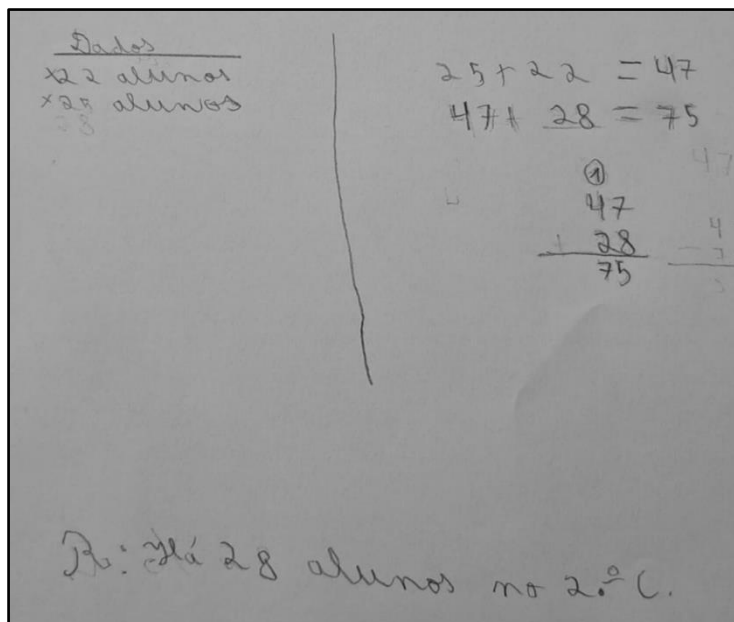 Dados
×22 alunos
×25 alunos
28
25+22 = 47
47+ 28 = 75
①
47
+ 28
75
47
4
- 7
R: Há 28 alunos no 2.º C.